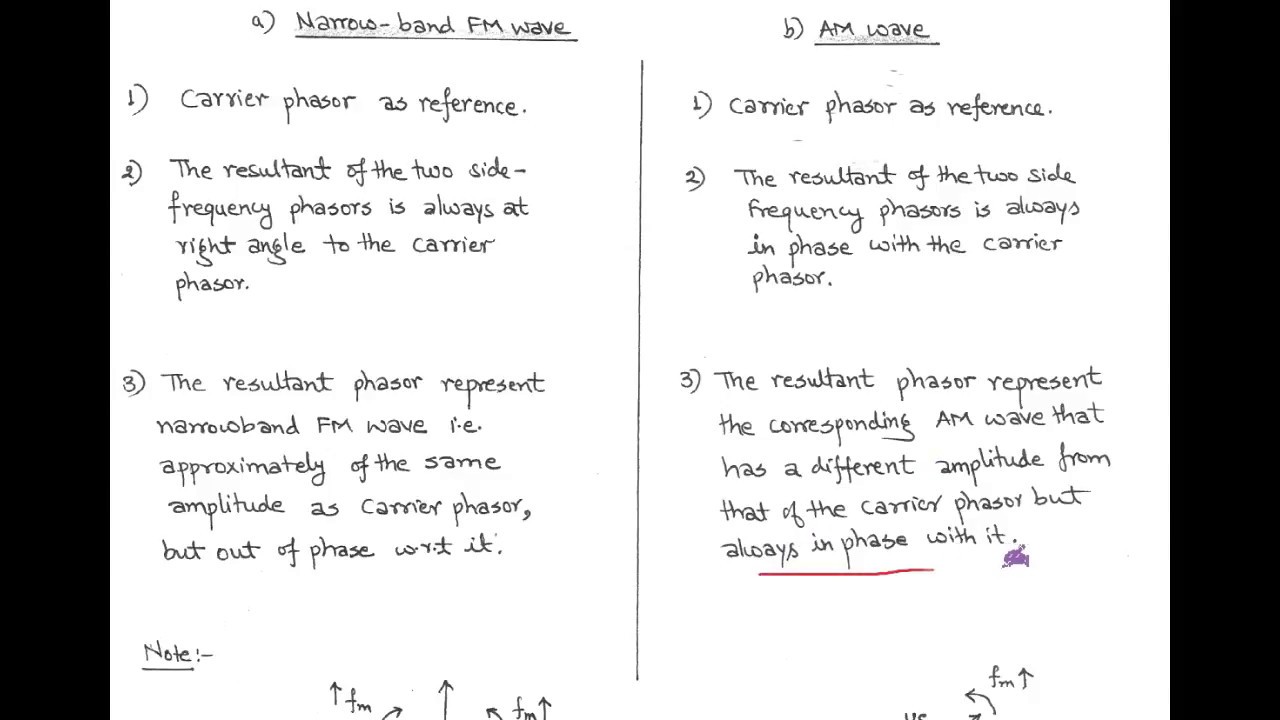 a) Narrow-band FM wave
1) Carrier phasor as reference.
2) The resultant of the two side-
frequency phasors is always at
right angle to the carrier
phasor.
3) The resultant phasor represent
narrowband FM wave i.e.
approximately of the same
amplitude as carrier phasor,
but out of phase w.r.t it.
b) AM wave
1) Carrier phasor as reference.
2) The resultant of the two side
frequency phasors is always
in phase with the carrier
phasor.
3) The resultant phasor represent
the corresponding AM wave that
has a different amplitude from
that of the carrier phasor but
always in phase with it.
Note:-
↑fm
fm↑
fm↑